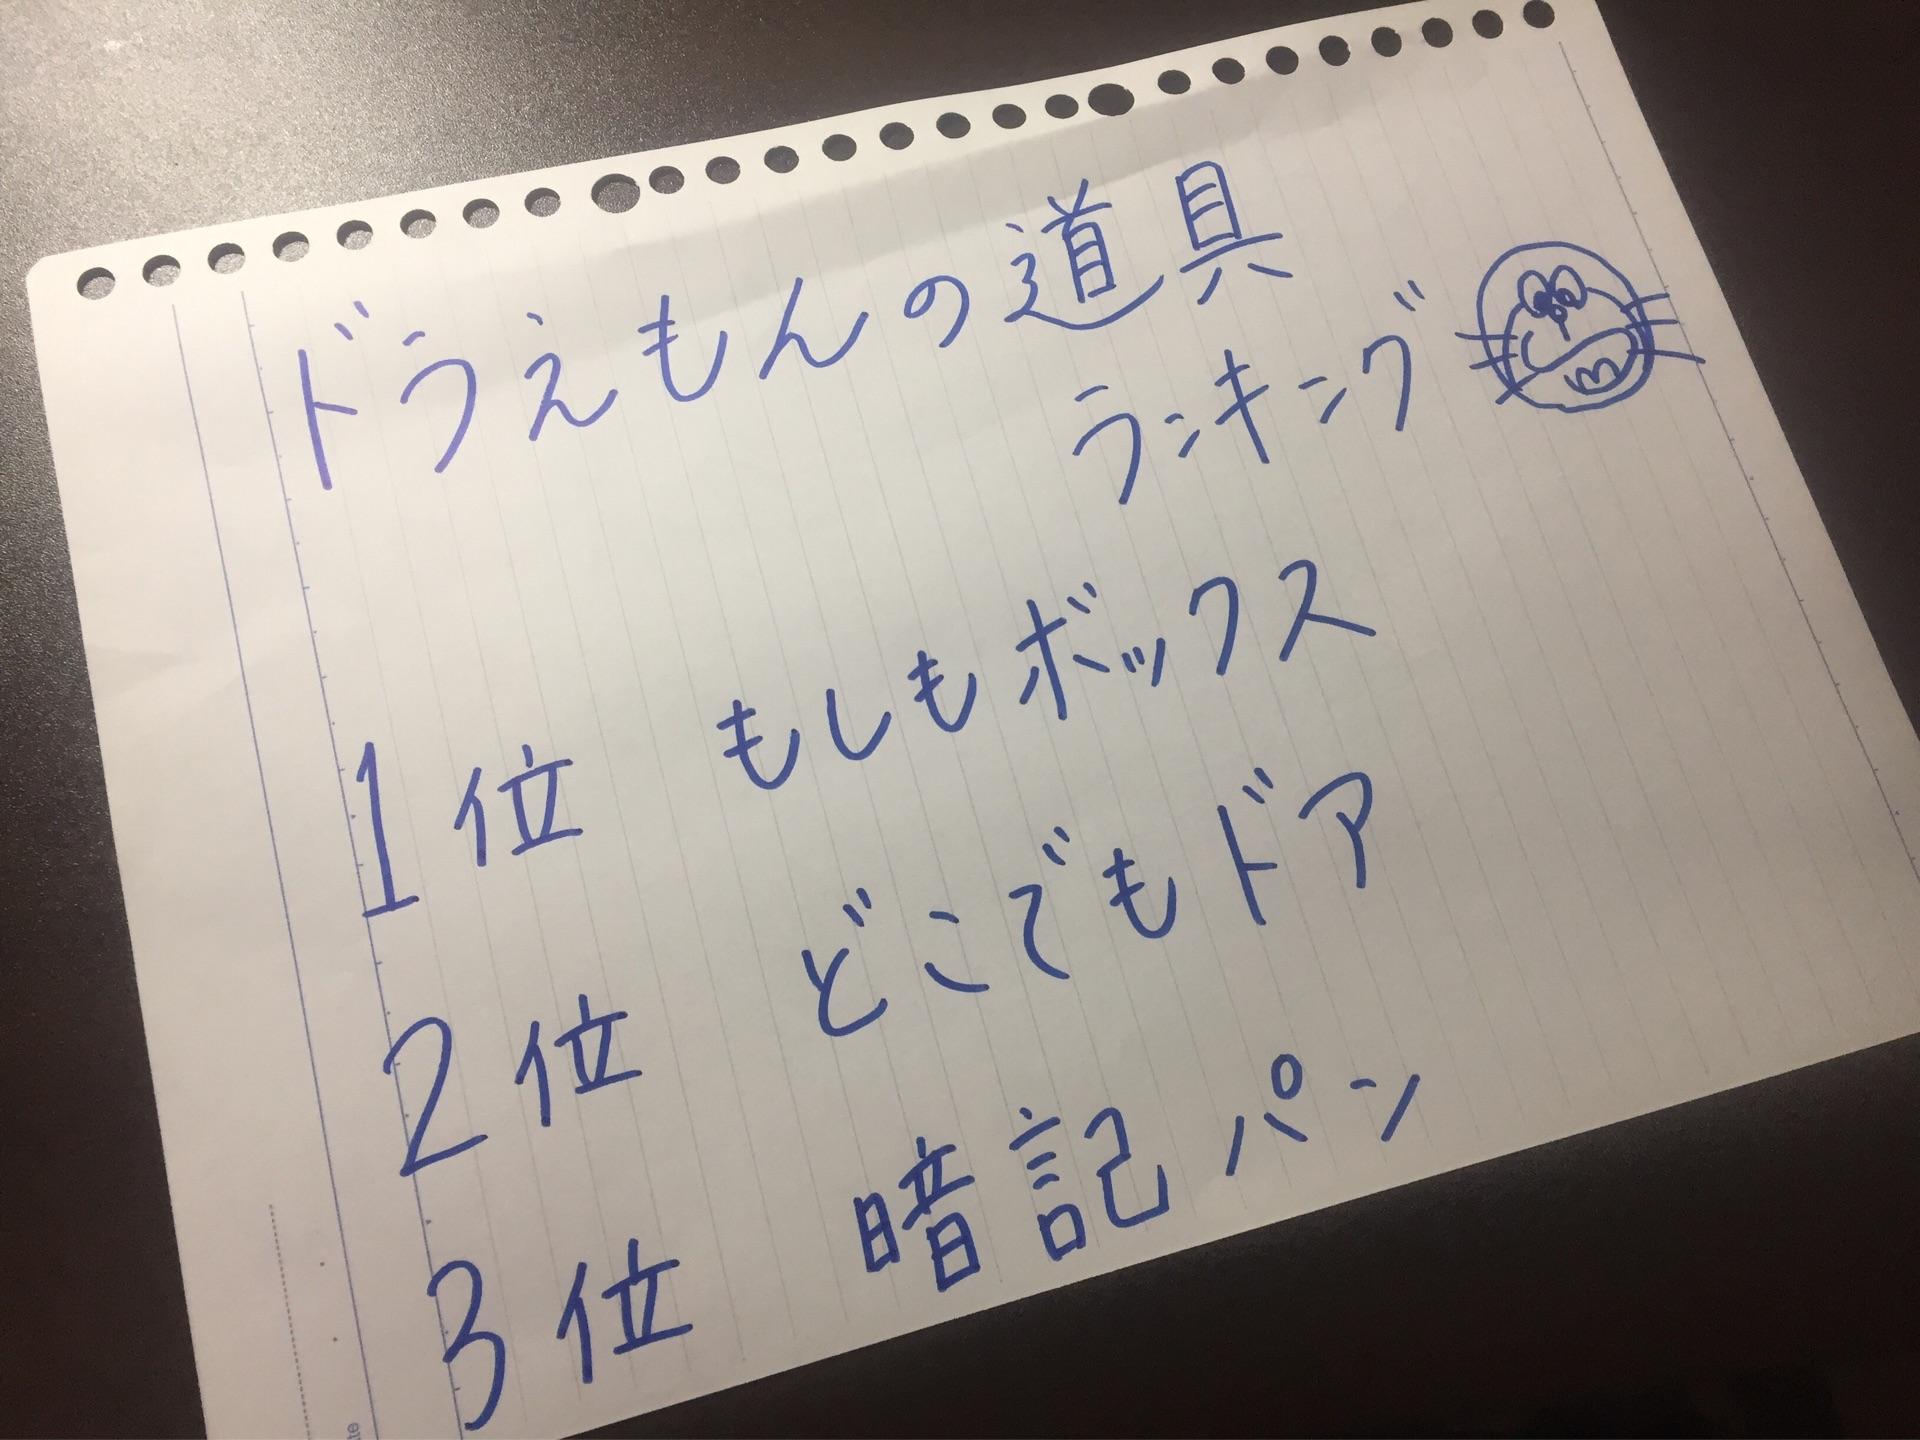 ドラえもんの道具
ランキング
1位 もしもボックス
2位 どこでもドア
3位 暗記パン